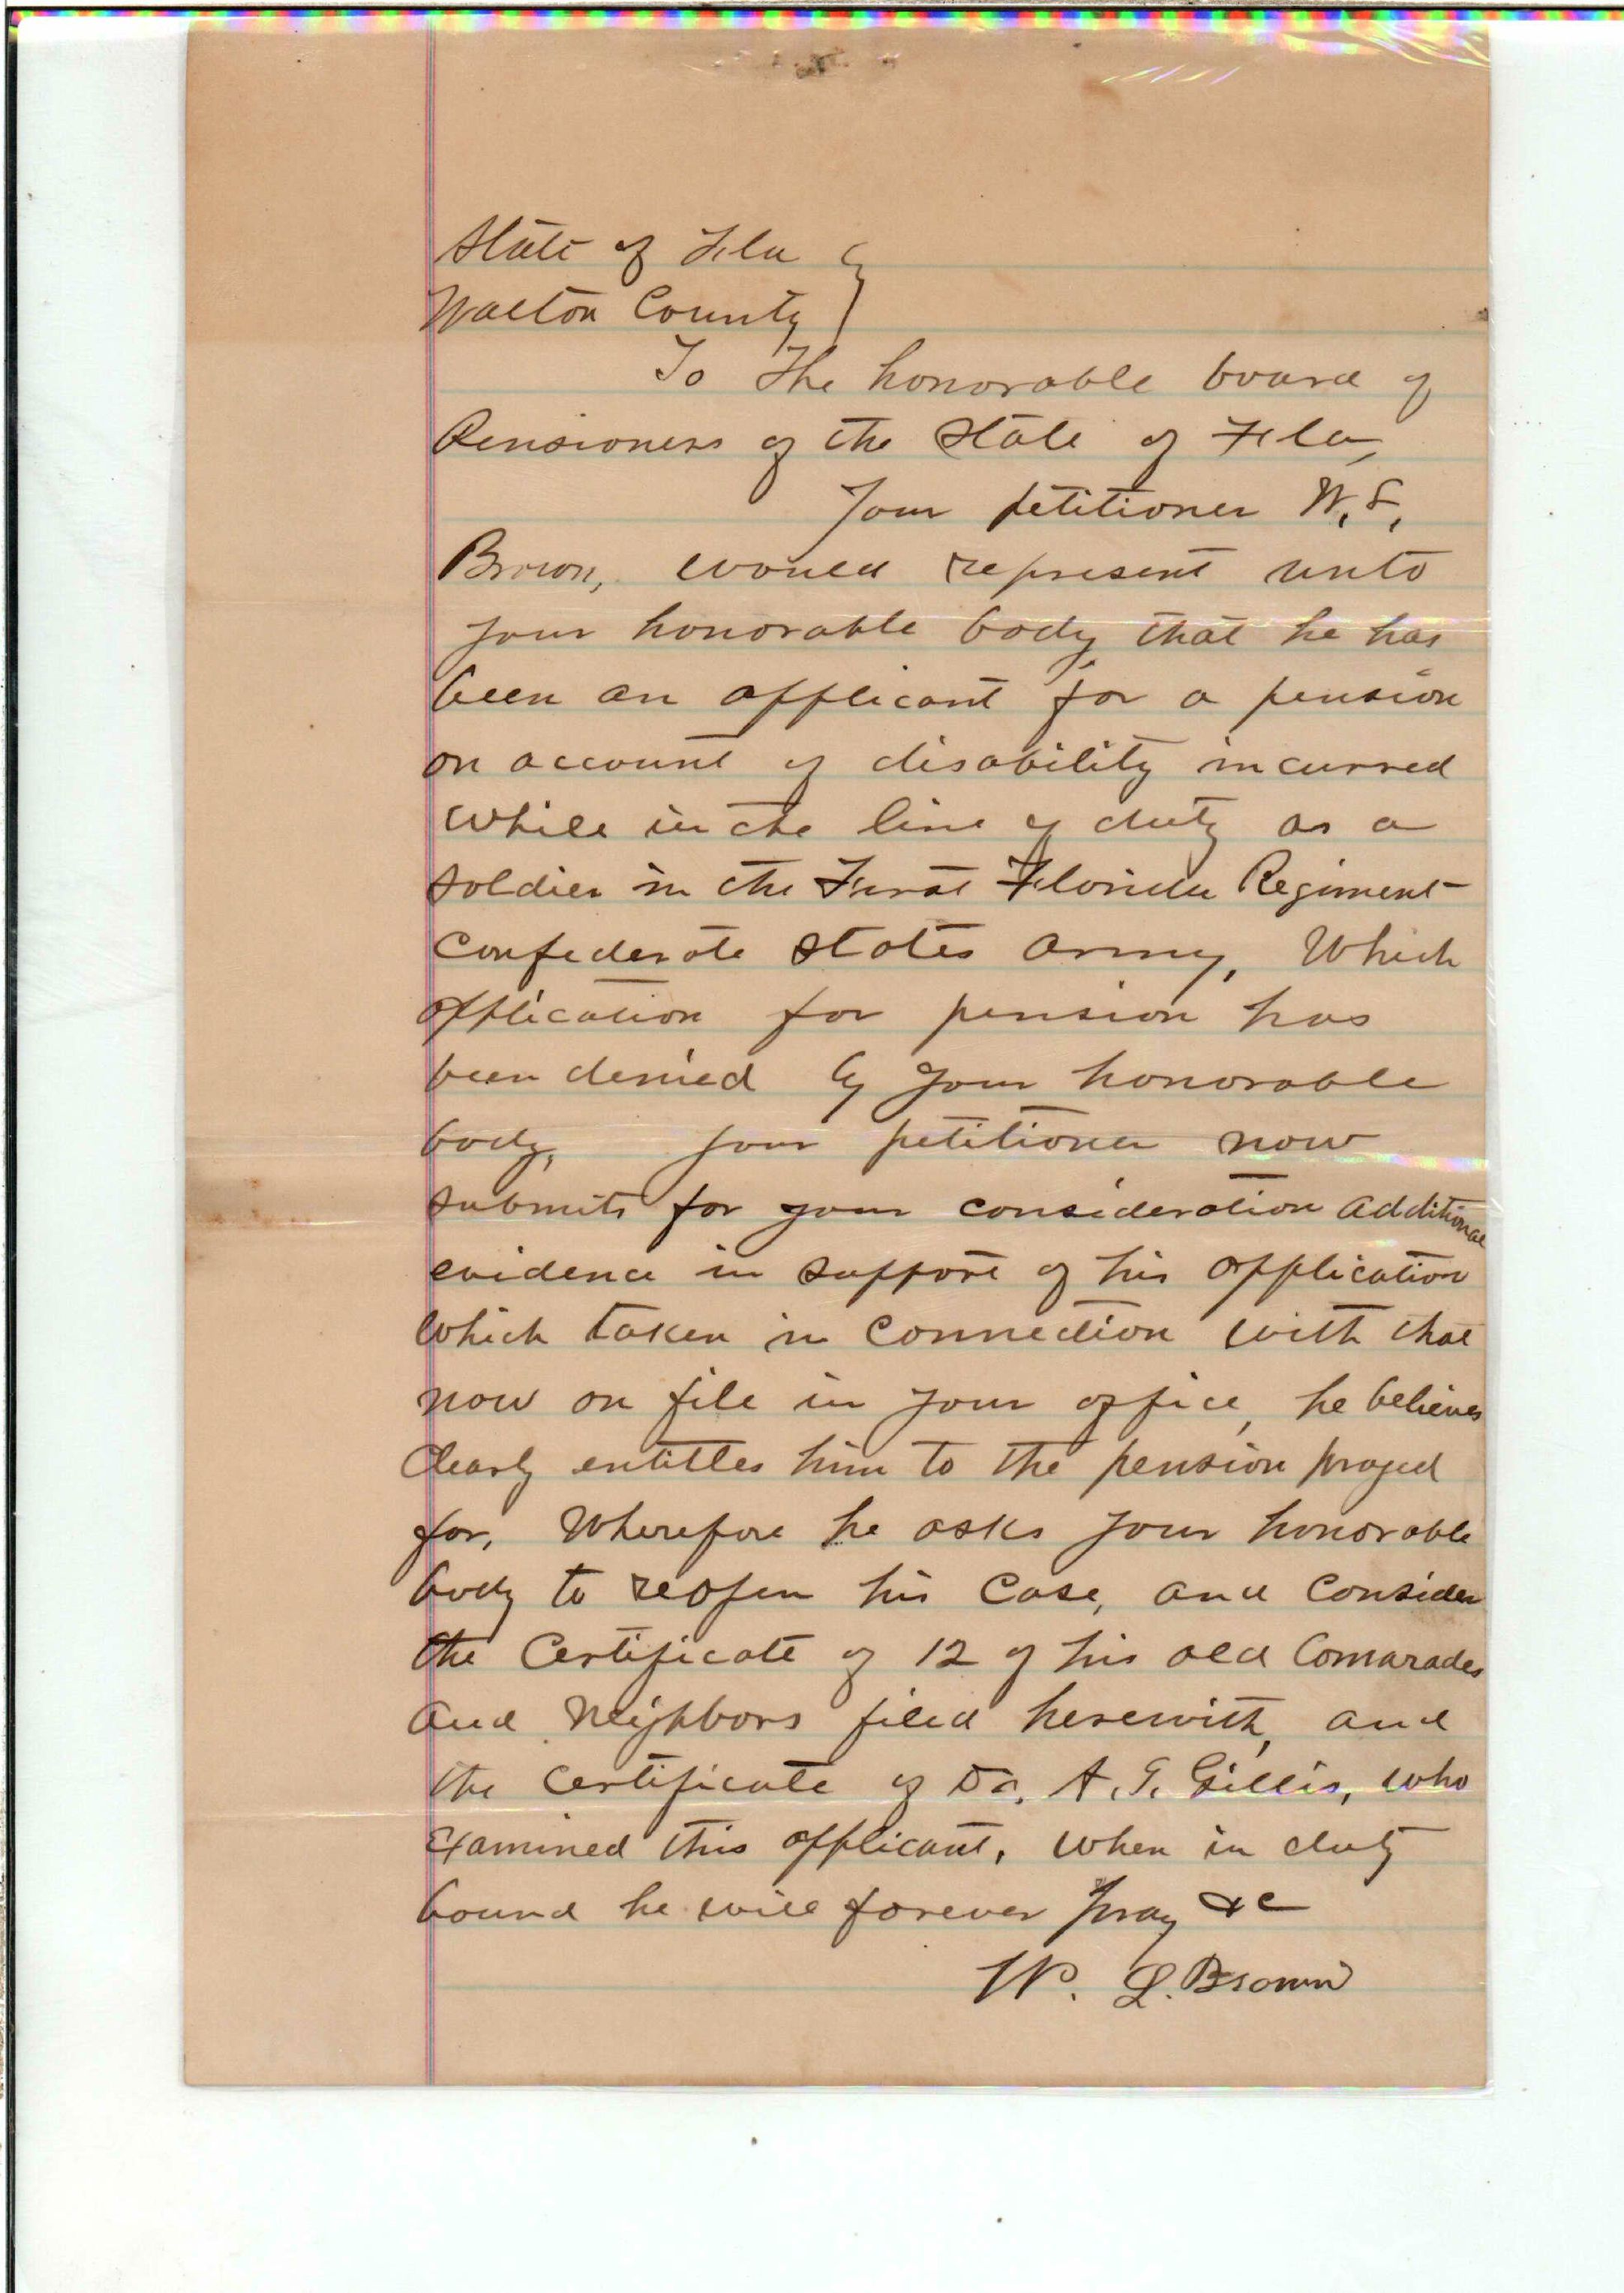 State of Fla }
Walton County }
To The honorable board of
Pensioners of the State of Fla,
Your petitioner W.
Brown, would represent unto
your honorable body that he has
been an applicant for a pension
on account of disability incurred
while in the line of duty as a
soldier in the First Florida Regiment
Confederate States Army, Which
application for pension has
been denied by your honorable
body, your petitioner now
submits for your consideration additional
evidence in support of his application
which taken in connection with that
now on file in your office, he believes
clearly entitles him to the pension prayed
for, Wherefore he asks your honorable
body to reopen his case, and consider
the Certificate of 12 of his old Comarades
and Neighbors filed herewith, and
the certificate of Dr. A. G. Gillis, who
Examined this applicant, when in duty
bound he will forever pray &c
W. L. Brown